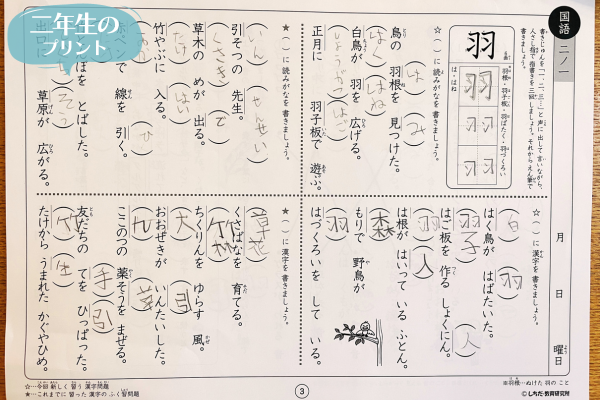 二年生の
プリント
国語 二ノ一
月 日 曜日
書きじゅんを「一、二、三…」と 声に 出して 言いながら、
人さし指で 指書きを 三回 しましょう。それから えん筆で
書きましょう。
羽
は・はね
羽根・羽子板・羽ばたく・羽づくろい
羽
☆（ ）に 読みがなを 書きましょう。
鳥の 羽根を 見つけた。
白鳥が 羽を 広げる。
正月に 羽子板で 遊ぶ。
★（ ）に 読みがなを 書きましょう。
引そつの 先生。
いん せんせい
草木の めが 出る。
くさき で
竹やぶに 入る。
たけ はい
線を 引く。
ひ
とばした。
草原が 広がる。
☆（ ）に 漢字を 書きましょう。
はく鳥が はばたいた。
白 羽
はご板を 作る しょくにん。
羽子 人
は根が はいって いる ふとん。
羽 入
もりで 野鳥が
森
はづくろいを して いる。
羽
★（ ）に 漢字を 書きましょう。
くさばなを 育てる。
草花
ちくりんを ゆらす 風。
竹林
おおぜきが いんたいした。
大 引
ここのつの 薬そうを まぜる。
九 草
友だちの てを ひっぱった。
手 引
たけから うまれた かぐやひめ。
竹 生
☆…今回 新しく 習う 漢字問題
★…これまでに 習った 漢字の ふく習問題
3
※羽根…ぬけた 羽の こと
©しちだ・教育研究所